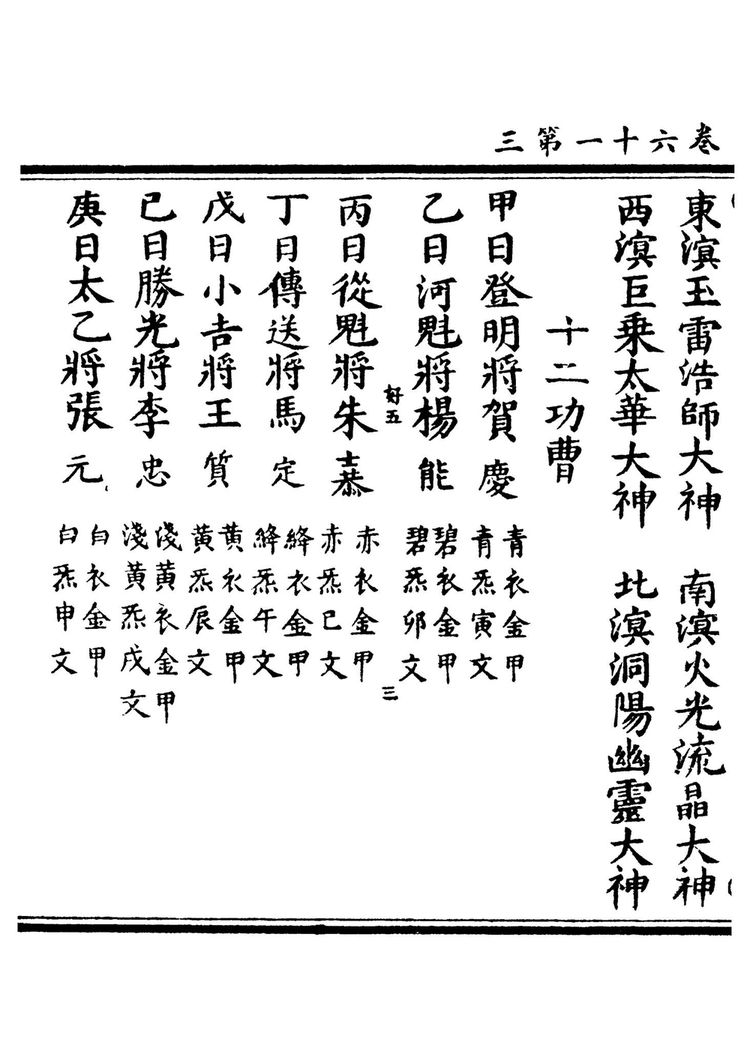 三第一十六卷
東溟玉雷浩師大神　南溟火光流晶大神
西溟巨乘太華大神　北溟洞陽幽靈大神
十二功曹
甲日登明將賀慶　青衣金甲
青炁寅文
乙日河魁將楊能　碧衣金甲
碧炁卯文
好五　三
丙日從魁將朱恭　赤衣金甲
赤炁巳文
丁日傳送將馬定　絳衣金甲
絳炁午文
戊日小吉將王質　黃衣金甲
黃炁辰文
己日勝光將李忠　淺黃衣金甲
淺黃炁戌文
庚日太乙將張元　白衣金甲
白炁申文